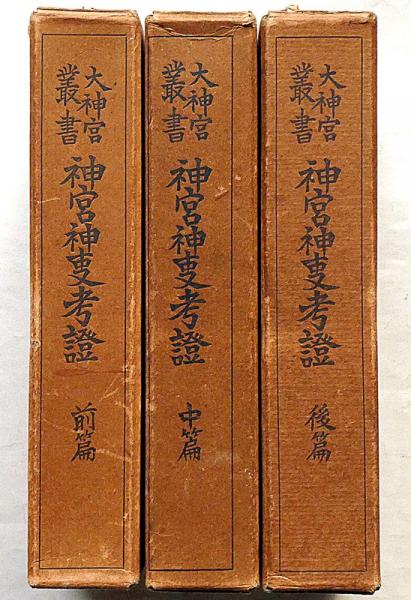 大神宮叢書
神宮神事考證
前篇
大神宮叢書
神宮神事考證
中篇
大神宮叢書
神宮神事考證
後篇